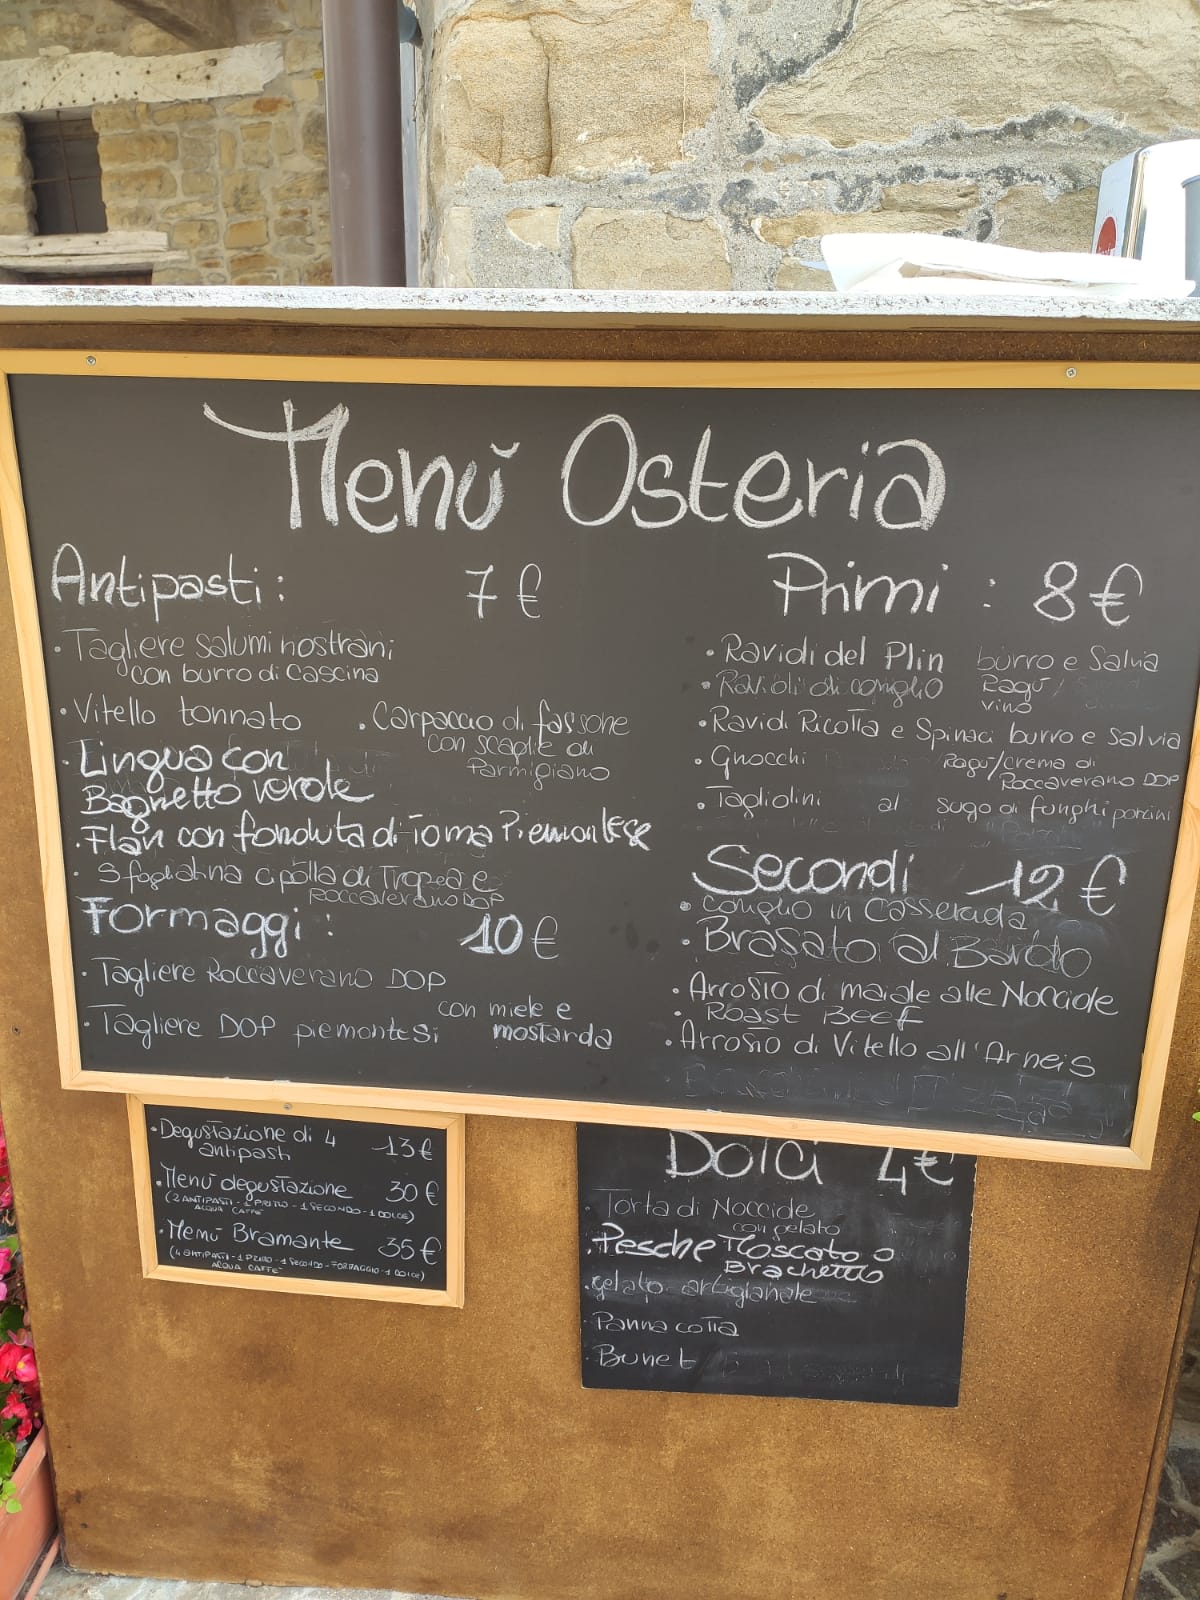 Menù Osteria
Antipasti: 7€
· Tagliere salumi nostrani
con burro di Cascina
· Vitello tonnato
· Carpaccio di fassone
con scaglie di
Parmigiano
· Lingua con
Bagnetto verde
· Flan con fonduta di Toma Piemontese
· Sfogliatina cipolla di Tropea e
Roccaverano DOP
Formaggi: 10€
· Tagliere Roccaverano DOP
· Tagliere DOP piemontesi
con miele e
mostarda
Primi: 8€
· Ravioli del Plin burro e Salvia
· Ravioli di coniglio Ragù/
vino
· Ravioli Ricotta e Spinaci burro e salvia
· Gnocchi Ragù/crema di
Roccaverano DOP
· Tagliolini al sugo di funghi porcini
Secondi 12€
· coniglio in Casseruola
· Brasato al Barolo
· Arrosto di maiale alle Nocciole
· Roast Beef
· Arrosto di Vitello all'Arneis
· Degustazione di 4 13€
antipasti
· Menù degustazione 30€
(2 ANTIPASTI - 1 PRIMO - 1 SECONDO - 1 DOLCE)
ACQUA CAFFÈ
· Menù Bramante 35€
(4 ANTIPASTI - 1 PRIMO - 1 SECONDO - FORMAGGIO - 1 DOLCE)
ACQUA CAFFÈ
Dolci 4€
· Torta di Nocciole
con gelato
· Pesche Moscato o
Brachetto
· gelato artigianale
· Panna cotta
· Bunet